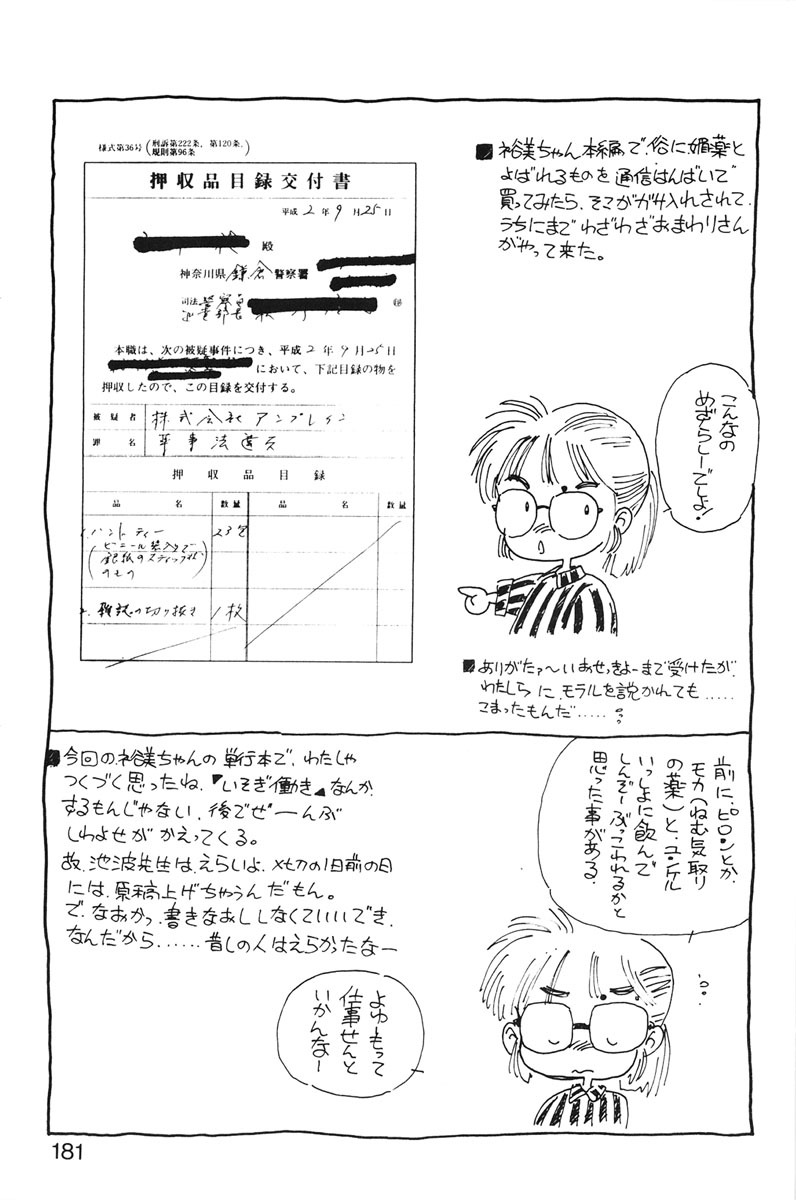 ■裕美ちゃん本編で、俗に媚薬と
よばれるものを通信はんばいで
買ってみたら、そこがガサ入れされて、
うちにまでわざわざおまわりさん
がやって来た。
様式第36号(刑訴第222条、第120条、
規則第96条)
押収品目録交付書
平成2年9月25日
殿
神奈川県鎌倉警察署
司法警察員
本職は、次の被疑事件につき、平成2年9月25日
において、下記目録の物を
押収したので、この目録を交付する。
被疑者 株式会社アンブレイン
罪名 薬事法違反
押収品目録
品名 数量 品名 数量
1.ハントティー 23包
(ビニール袋入りで
銀紙のスティック状
のもの)
2.雑誌の切り抜き 1枚
こんなの
めずらしーでしょ!
■ありがたァ〜いおせっきょーまで受けたが、
わたしらに、モラルを説かれても.....
こまったもんだ.....
前に、ピロンとか、
モカ(ねむ気取り
の薬)と、ユンケル
いっしょに飲んで
しんぞーぶっこわれるかと
思った事がある。
■今回の裕美ちゃんの単行本で、わたしゃ
つくづく思ったね、「いそぎ働き」なんか、
するもんじゃない、後でぜーんぶ
しわよせがかえってくる。
故、池波先生は、えらいよ、〆切の1日前の日
には、原稿上げちゃうんだもん。
で、なおかつ、書きなおししなくていいでき、
なんだから......昔しの人はえらかったなー
よゆーもって
仕事せんと
いかんなー
181